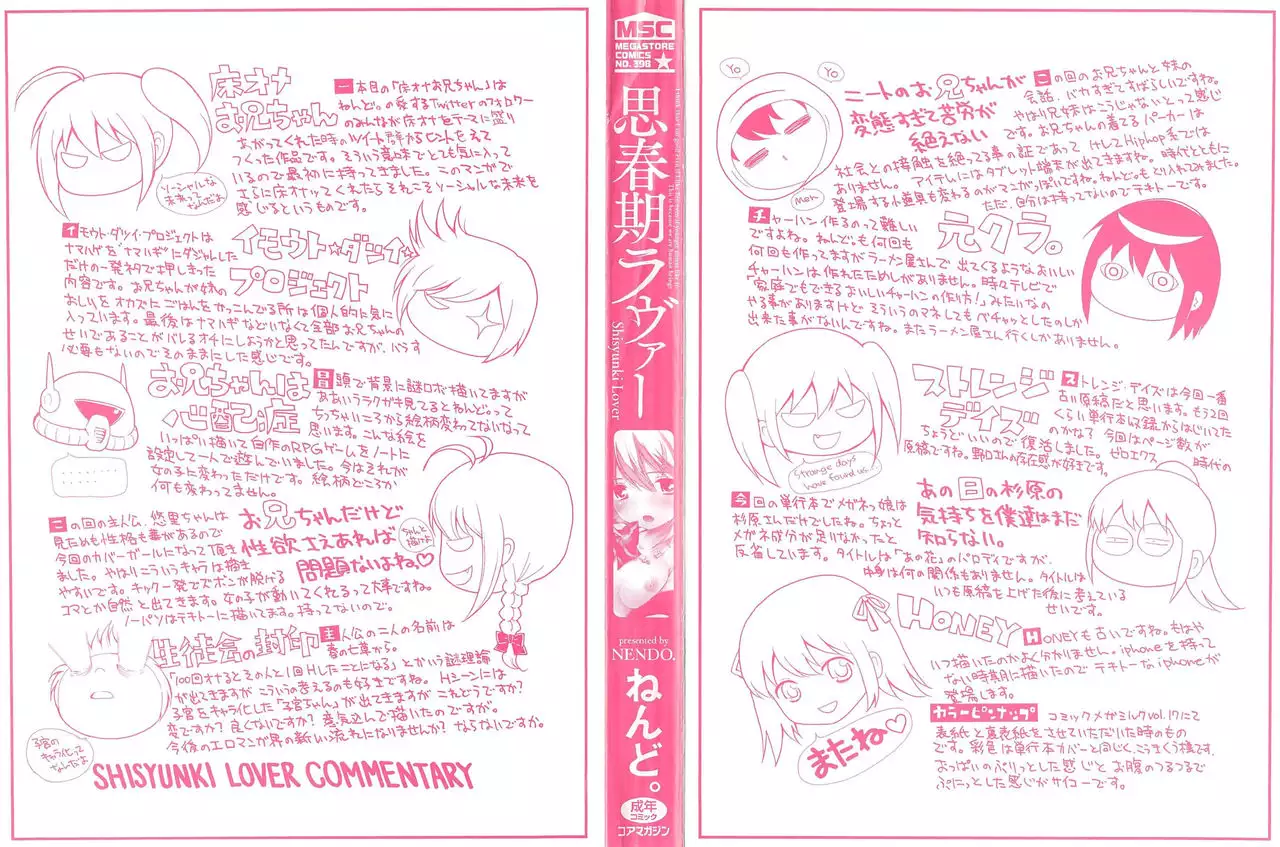 床オナ
お兄ちゃん
一本目の「床オナお兄ちゃん」は
ねんど。の愛するTwitterのフォロワー
のみんなが床オナセテーマに盛り
あがってくれた時のツイート群からヒントをえて
つくった作品です。そういう意味でとても気に入って
いるので最初に持ってきました。このマンガで
さらに床オナってくれたらそれこそソーシャルな未来を
感じるというものです。
ソーシャルな
未来って
なんだよ
イモウト☆ダツイ☆
プロジェクト
イモウト・ダツイ・プロジェクトは
ナマハゲを「ナマハギ」にダジャレした
だけの一発ネタで押しまった
内容です。お兄ちゃんが妹の
おしりをオカズにごはんをかっこんでる所は個人的に気に
入っています。最後はナマハギなどいなくて全部お兄ちゃんの
せいであることがバレるオチにしようかと思ってたんですが、バラす
必要もないのでそのままにした感じです。
お兄ちゃんは
心配症
冒頭で背景に謎ロボ描いてますが
ああいうラクガキ見てるとねんど。って
ちっちゃいころから絵柄変わってないなって
思います。こんな絵を
いっぱい描いて自作のRPGゲームをノートに
設定して一人で遊んでいました。今はそれが
女の子に変わっただけです。絵柄どころか
何も変わってません。
お兄ちゃんだけど
性欲さえあれば
問題ないよね♡
この回の主人公、悠里ちゃんは
見ためも性格も華があるので
今回のカバーガールになって頂き
ました。やはりこういうキャラは描き
やすいです。チャック一発でズボンが脱げる
コマとか自然と出てきます。女の子が動いてくれるって大事ですね。
ノーパソはテキトーに描いてます。持ってないので。
ちゃんと
描けよ
生徒会の封印
主人公の二人の名前は
春の七草から。
「100回オナるとその人と1回Hしたことになる」とかいう謎理論
が出てきますがこういうの考えるのも好きですね。Hシーンには
子宮をキャラ化した「子宮ちゃん」が出てきますがこれどうですか?
変ですか?良くないですか?意気込んで描いたのですが。
今後のエロマンガ界の新しい流れになりませんか?ならないですか。
子宮の
キャラ化って
なんだよ
SHISYUNKI LOVER COMMENTARY
MSC
MEGASTORE
COMICS
NO.398
思春期ラヴァー
Shisyunki Lover
presented by
NENDO.
ねんど。
成年
コミック
コアマガジン
Yo
Yo
Men
ニートのお兄ちゃんが
変態すぎて苦労が
絶えない
この回のお兄ちゃんと妹の
会話、バカすぎてすばらしいですね。
やはり兄妹はこうじゃないとって感じ
です。お兄ちゃんの着てるパーカーは
社会との接触を絶ってる事の証であって、けしてHiphop系では
ありません。アイテムにはタブレット端末が出てきますね。時代とともに
登場する小道具も変わるのがマンガっぽいですね。ねんど。もとり入れてみました。
ただ、自分は持ってないのでテキトーです。
元クラ。
チャーハン作るのって難しい
ですよね。ねんど。も何回も
何回も作ってますがラーメン屋さんで出てくるようなおいしい
チャーハンは作れたためしがありません。時々テレビで
「家庭でもできるおいしいチャーハンの作り方!」みたいなの
やる事がありますけどそういうのマネしてもベチャッとしたのしか
出来た事がないんですね。またラーメン屋さん行くしかありません。
ストレンジ
デイズ
ストレンジ・デイズは今回一番
古い原稿だと思います。もう2回
くらい単行本収録からはじいてた
のかな?今回はページ数が
ちょうどいいので復活しました。ゼロエクス時代の
原稿ですね。野口さんの存在感が好きです。
Strange days
have found us…
あの日の杉原の
気持ちを僕達はまだ
知らない。
今回の単行本でメガネっ娘は
杉原さんだけでしたね。ちょっと
メガネ成分が足りなかったと
反省しています。タイトルは「あの花」のパロディですが、
中身は何の関係もありません。タイトルは
いつも原稿を上げた後に考えている
せいです。
HONEY
HONEYも古いですね。もはや
いつ描いたのかよく分かりません。iphoneを持って
ない時期に描いたのでテキトーなiphoneが
登場します。
またね♡
カラーピンナップ
コミックメガミルクvol.17にて
表紙と裏表紙をさせていただいた時のもの
です。彩色は単行本カバーと同じく、こうまくう様です。
おっぱいのぷりっとした感じとお腹のつるつるで
ぷにっとした感じがサイコーです。